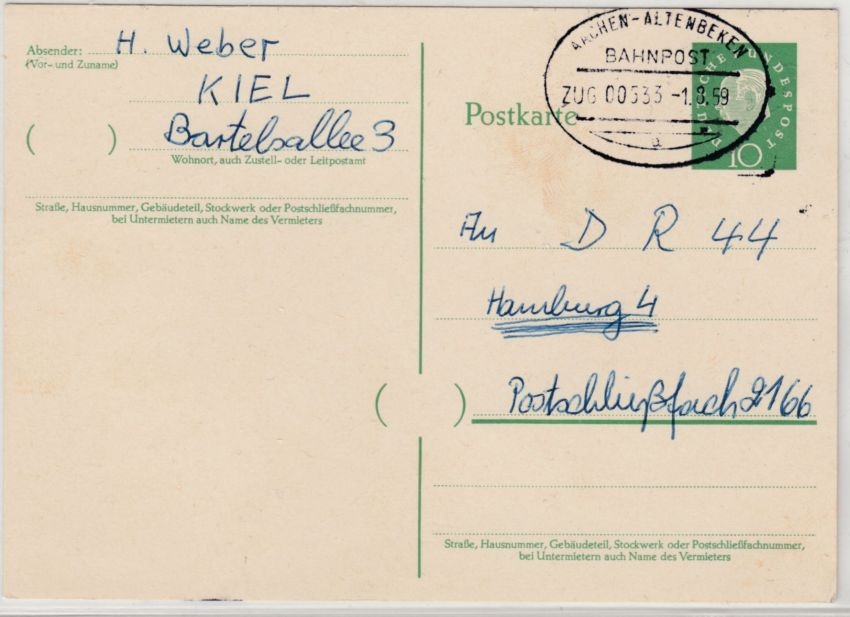 Absender: H. Weber
(Vor- und Zuname)
KIEL
( ) Bartelsallee 3
Wohnort, auch Zustell- oder Leitpostamt
Straße, Hausnummer, Gebäudeteil, Stockwerk oder Postschließfachnummer,
bei Untermietern auch Name des Vermieters
AACHEN-ALTENBEKEN
BAHNPOST
ZUG 00533 -1.8.59
a
DEUTSCHE BUNDESPOST
10
Postkarte
An D R 44
Hamburg 4
( ) Postschließfach 2166
Straße, Hausnummer, Gebäudeteil, Stockwerk oder Postschließfachnummer,
bei Untermietern auch Name des Vermieters